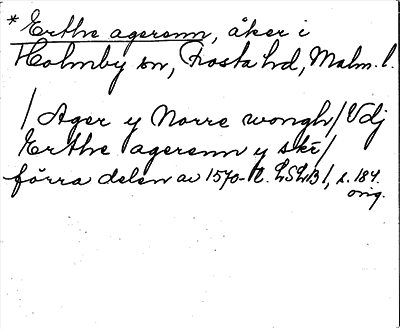 * Erthe agerenn, åker i
Holmby sn, Frosta hd, Malm. l.
/ Ager y Norre wongh / Vdj
Erthe agerenn y ske /
förra delen av 1570-t. LSLB 1, s. 184.
orig.